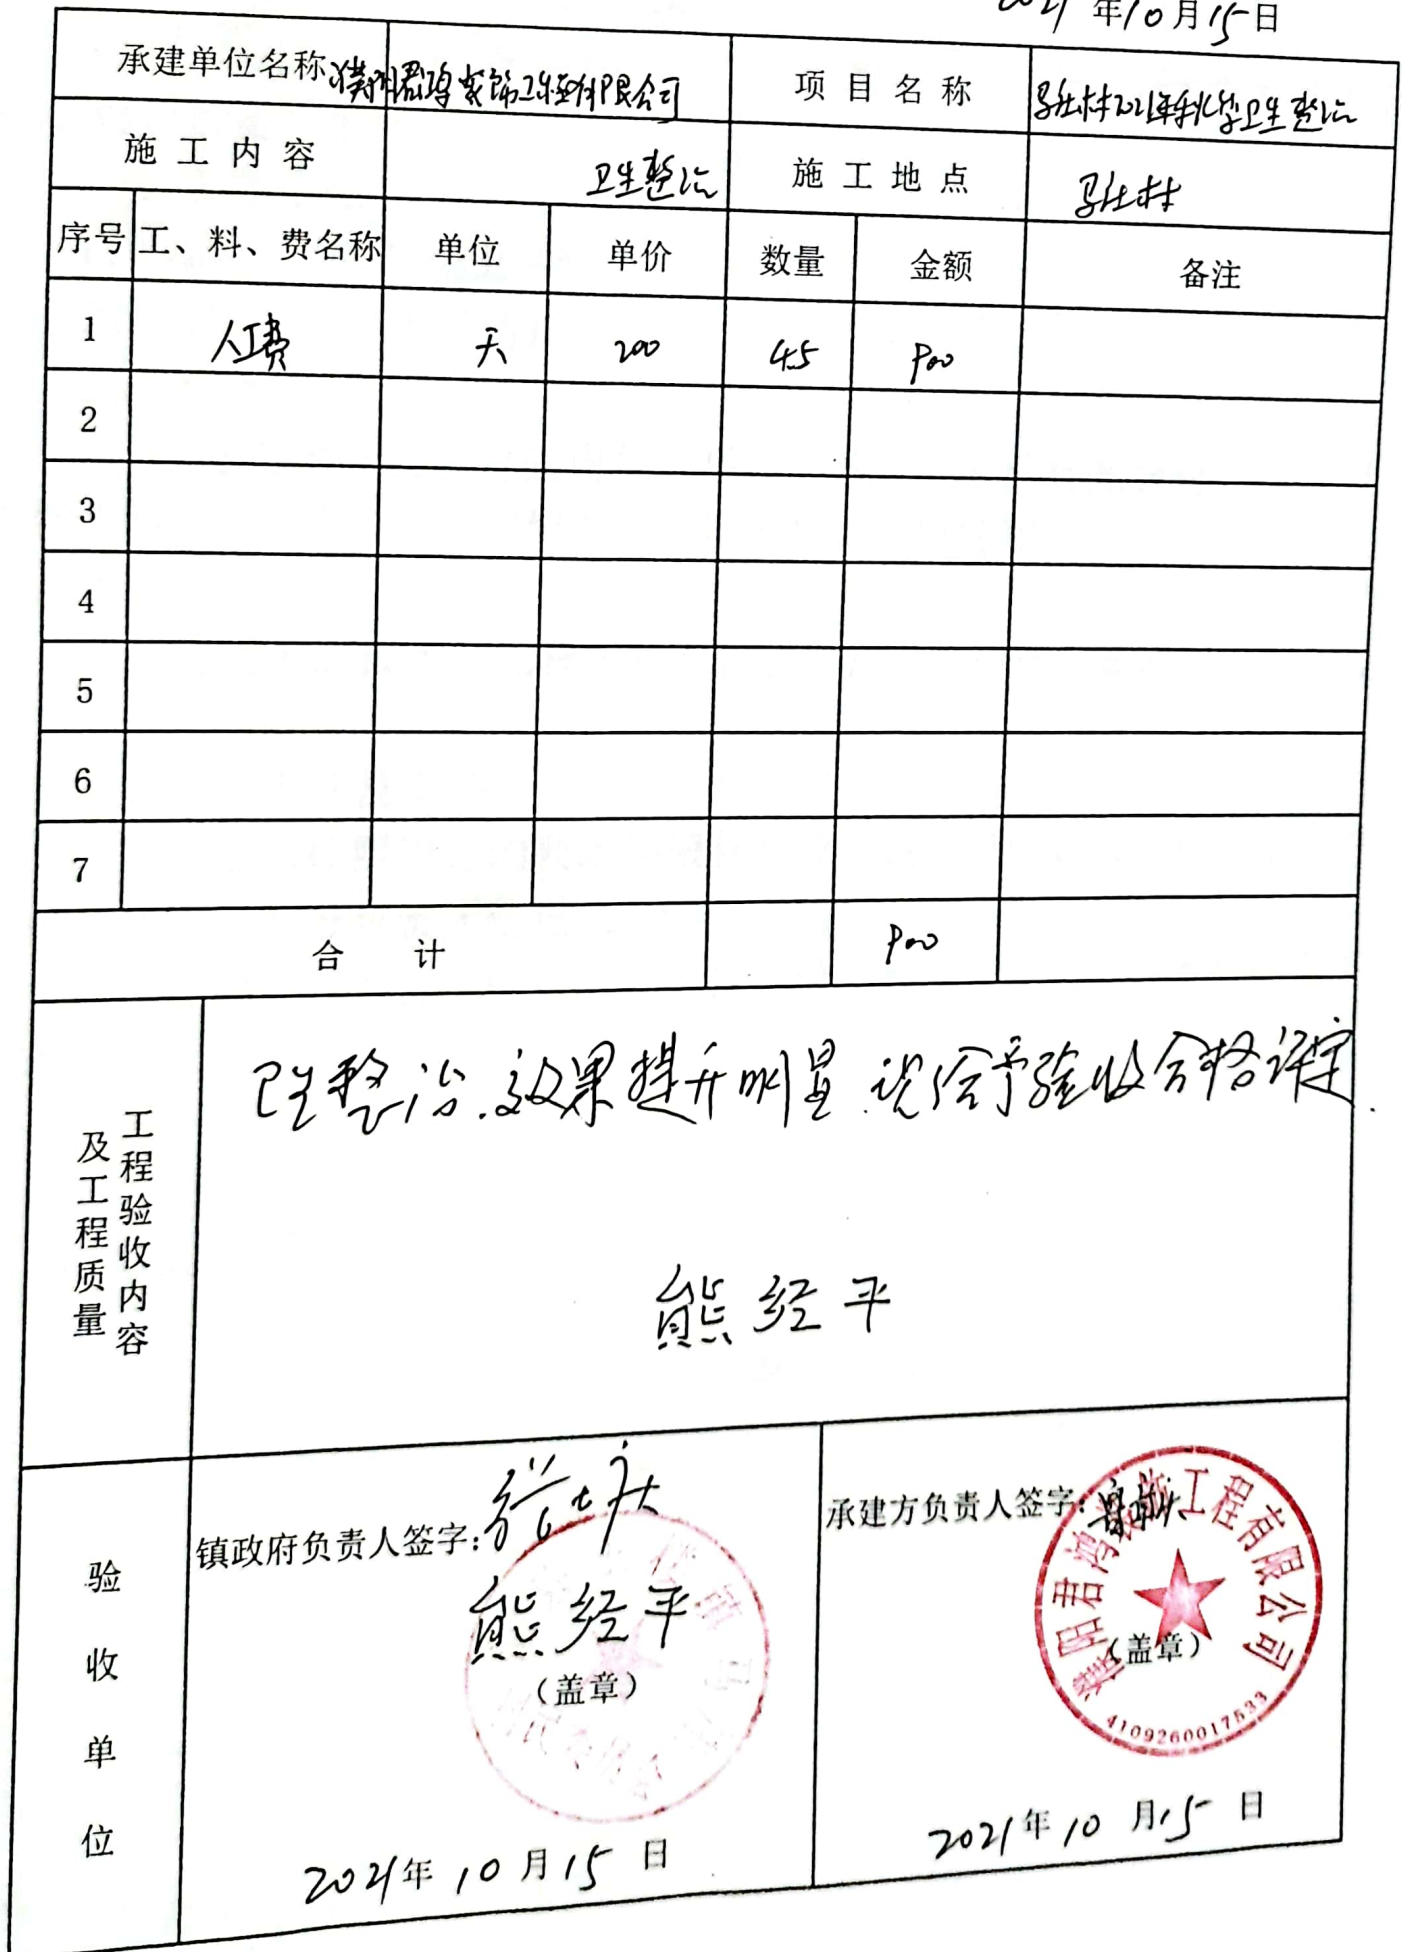 2021年10月15日
承建单位名称 濮阳君鸿装饰工程有限公司 项目名称 2021年秋季卫生整治
施工内容 卫生整治 施工地点
序号 工、料、费名称 单位 单价 数量 金额 备注
1 人工费 天 200 4.5 900
2
3
4
5
6
7
合计 900
工程验收内容
及工程质量
卫生整治.效果提升明显.现给予验收合格评定.
熊经平
验收单位
镇政府负责人签字:
熊经平
(盖章)
2021年10月15日
承建方负责人签字:
濮阳君鸿装饰工程有限公司
(盖章)
4109260017533
2021年10月15日